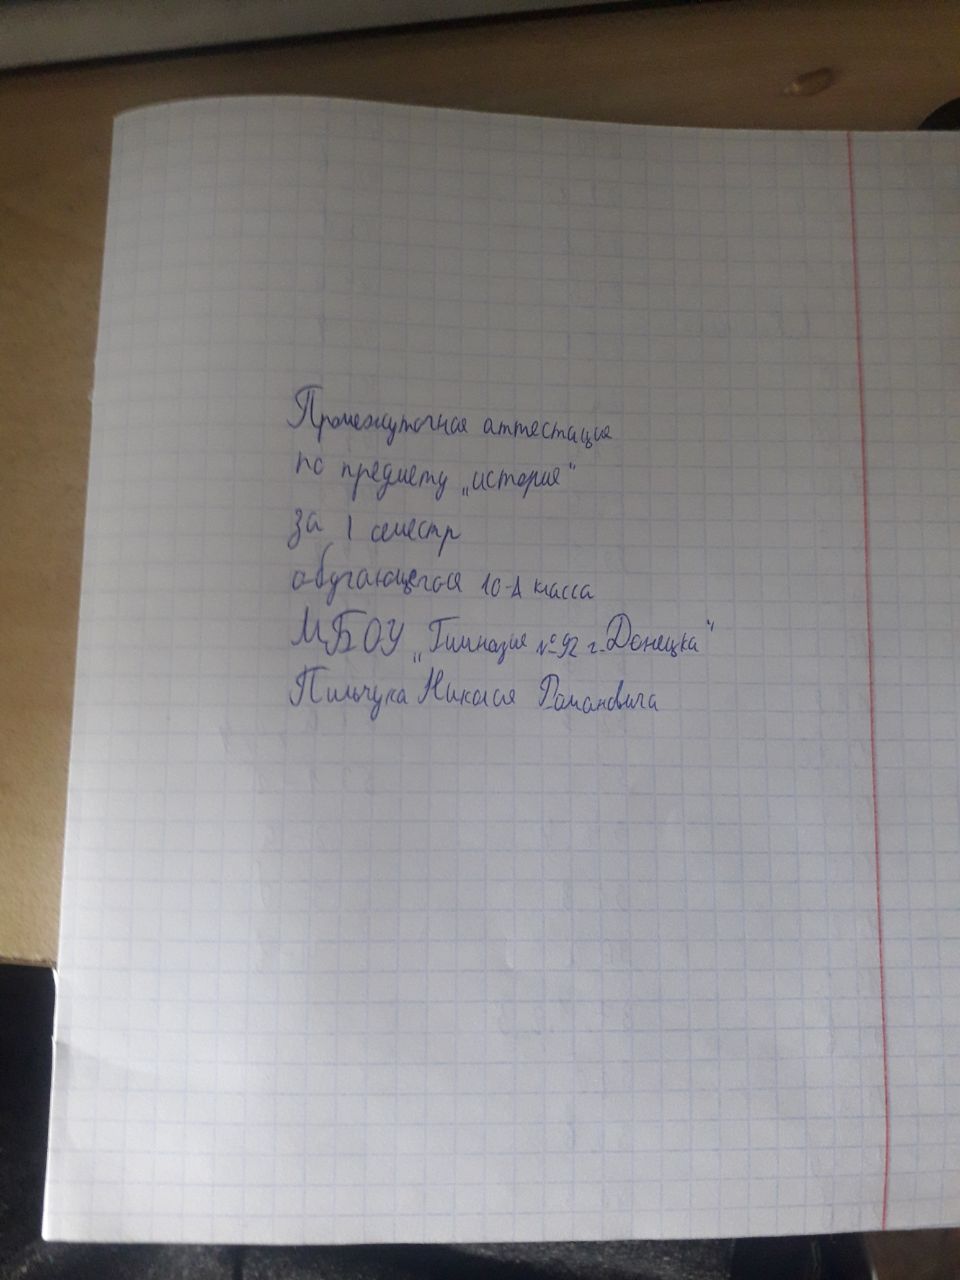 Промежуточная аттестация
по предмету „история“
за I семестр
обучающегося 10-А класса
МБОУ „Гимназия №92 г. Донецка“
Пильчука Николая Романовича